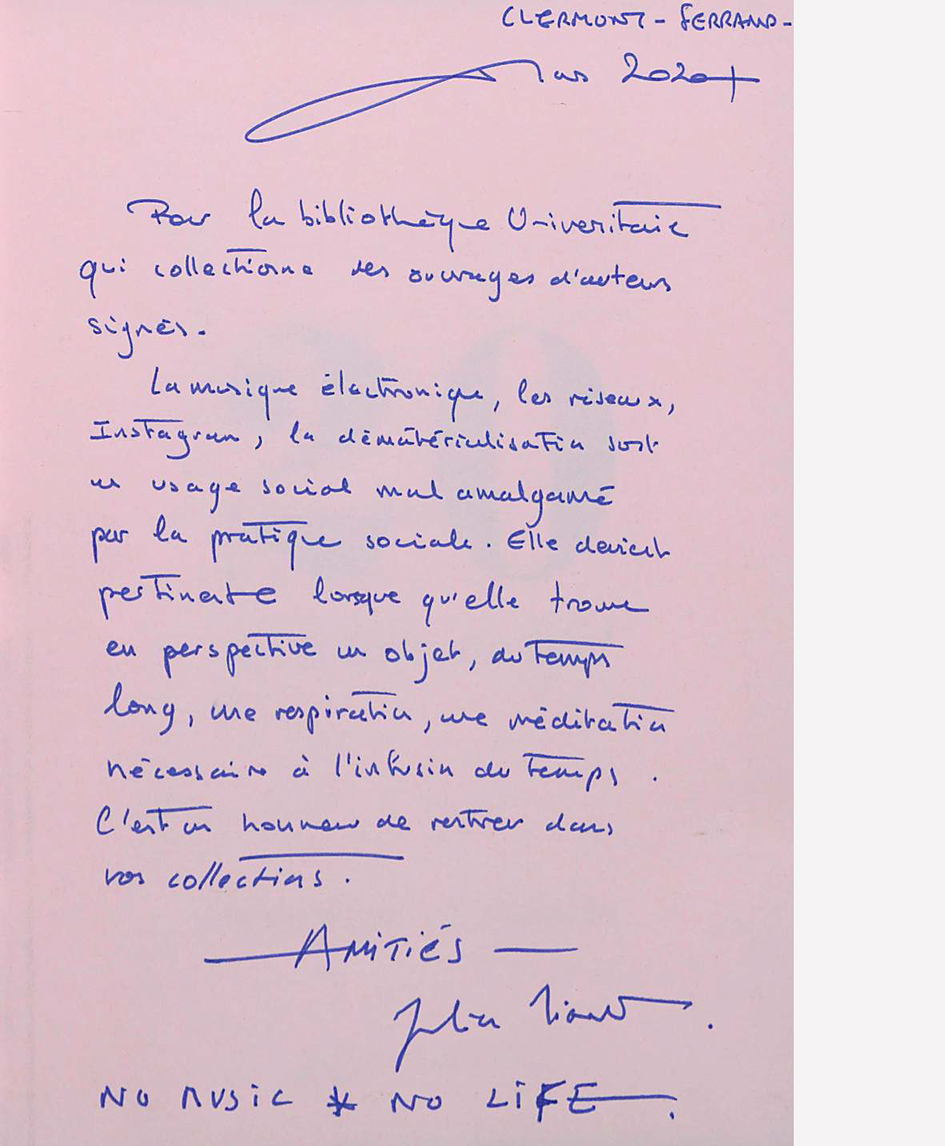 CLERMONT - FERRAND -
Mars 2020
Pour la bibliothèque Univeritaire
qui collectionne des ouvrages d'auteurs
signés.
La musique électronique, les réseaux,
Instagram, la dématérialisation sont
un usage social mal amalgamé
par la pratique sociale. Elle devient
pertinente lorsque qu'elle trouve
en perspective un objet, du temps
long, une respiration, une méditation
nécessaire à l'infusion du temps.
C'est un honneur de rentrer dans
vos collections.
AMITIÉS
NO MUSIC * NO LIFE.